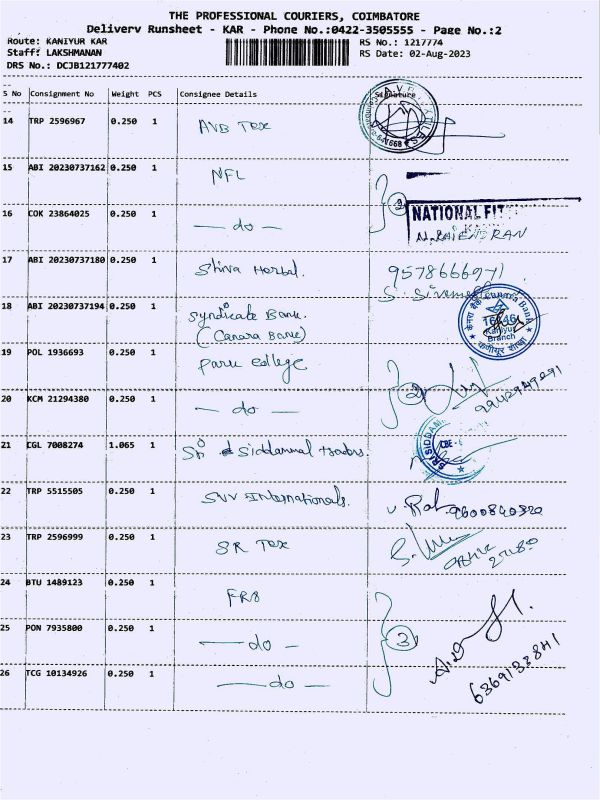 THE PROFESSIONAL COURIERS, COIMBATORE
Deliverv Runsheet - KAR - Phone No.:0422-3505555 - Page No.:2
Route: KANIYUR KAR RS No.: 1217774
Staff: LAKSHMANAN RS Date: 02-Aug-2023
DRS No.: DCJB121777402
S No Consignment No Weight PCS Consignee Details Signature
14 TRP 2596967 0.250 1 AVB Tex
15 ABI 20230737162 0.250 1 NFL
16 COK 23864025 0.250 1 — do — 2 NATIONAL FIT
N. RAJENDRAN
17 ABI 20230737180 0.250 1 Shiva Herbal. 9578666971
18 ABI 20230737194 0.250 1 Syndicate Bank.
(Canara Bank)
Canara Bank
16846
Kaniyur
Branch
केनरा बैंक
19 POL 1936693 0.250 1 Park College
20 KCM 21294380 0.250 1 — do — 2
21 CGL 7008274 1.065 1 Sri Siddammal traders.
22 TRP 5515505 0.250 1 SVV Internationals. 9600840320
23 TRP 2596999 0.250 1 SR Tex
24 BTU 1489123 0.250 1
25 PON 7935800 0.250 1 — do — 3
26 TCG 10134926 0.250 1 — do — 6369133841